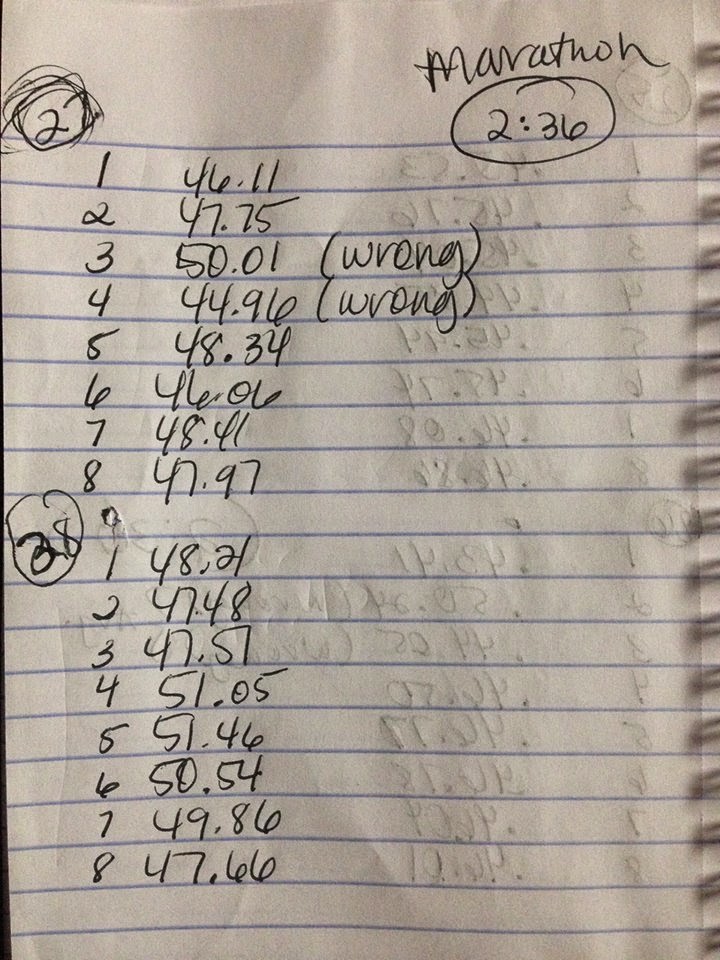 Marathon
27 2:36
1 46.11
2 47.75
3 50.01 (wrong)
4 44.96 (wrong)
5 48.34
6 46.06
7 48.41
8 47.97
28
1 48.21
2 47.48
3 47.57
4 51.05
5 51.46
6 50.54
7 49.86
8 47.66